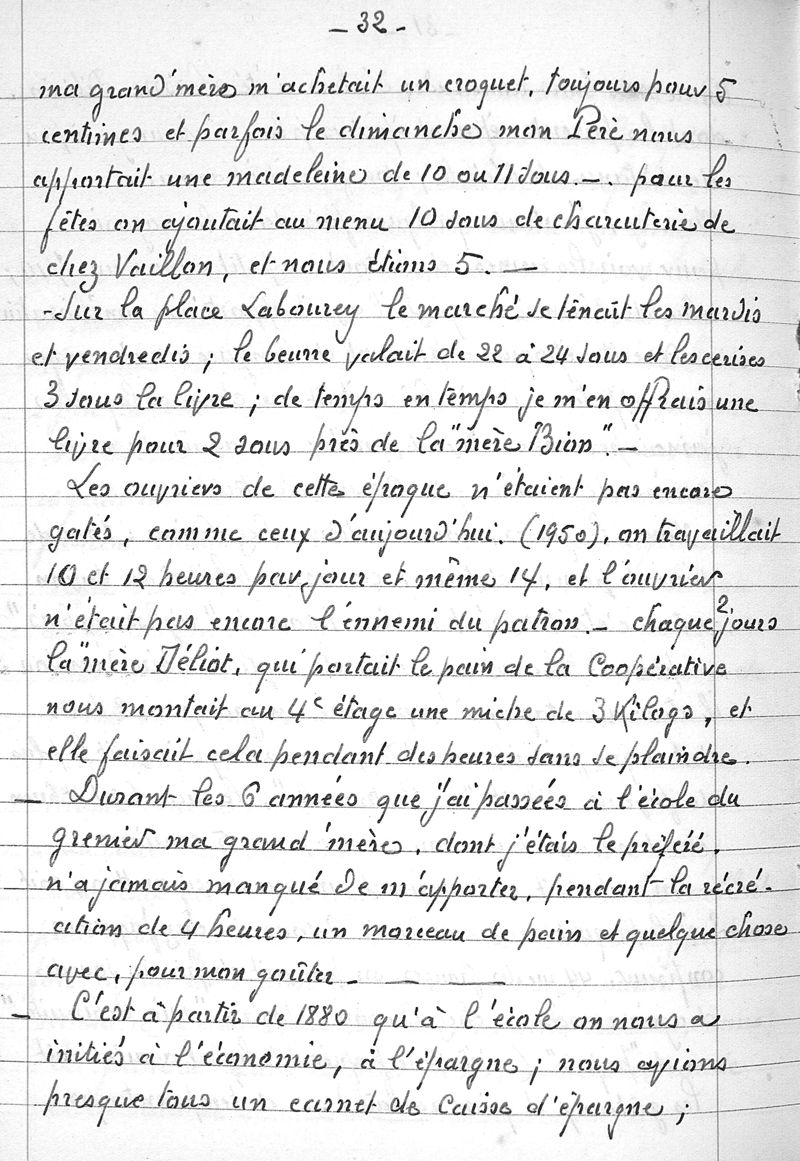 - 32 -
ma grand'mère m'achetait un croquet, toujours pour 5
centimes et parfois le dimanche mon Père nous
apportait une madeleine de 10 ou 11 sous. —. pour les
fêtes on ajoutait au menu 10 sous de charcuterie de
chez Vaillon, et nous étions 5. —
- Sur la place Labourey le marché se tenait les mardis
et vendredis ; le beurre valait de 22 à 24 sous et les cerises
3 sous la livre ; de temps en temps je m'en offrais une
livre pour 2 sous près de la "mère Bion". —
Les ouvriers de cette époque n'étaient pas encore
gatés, comme ceux d'aujourd'hui. (1950), on travaillait
10 et 12 heures par jour et même 14, et l'ouvrier
n'était pas encore l'ennemi du patron. — chaque 2 jours
la "mère Déliot, qui portait le pain de la Coopérative
nous montait au 4e étage une miche de 3 Kilogs, et
elle faisait cela pendant des heures sans se plaindre.
— Durant les 6 années que j'ai passées à l'école du
grenier ma grand'mère, dont j'étais le préféré,
n'a jamais manqué de m'apporter, pendant la récré-
ation de 4 heures, un morceau de pain et quelque chose
avec, pour mon goûter. — — —
— C'est à partir de 1880 qu'à l'école on nous a
initiés à l'économie, à l'épargne ; nous avions
presque tous un carnet de Caisse d'épargne ;